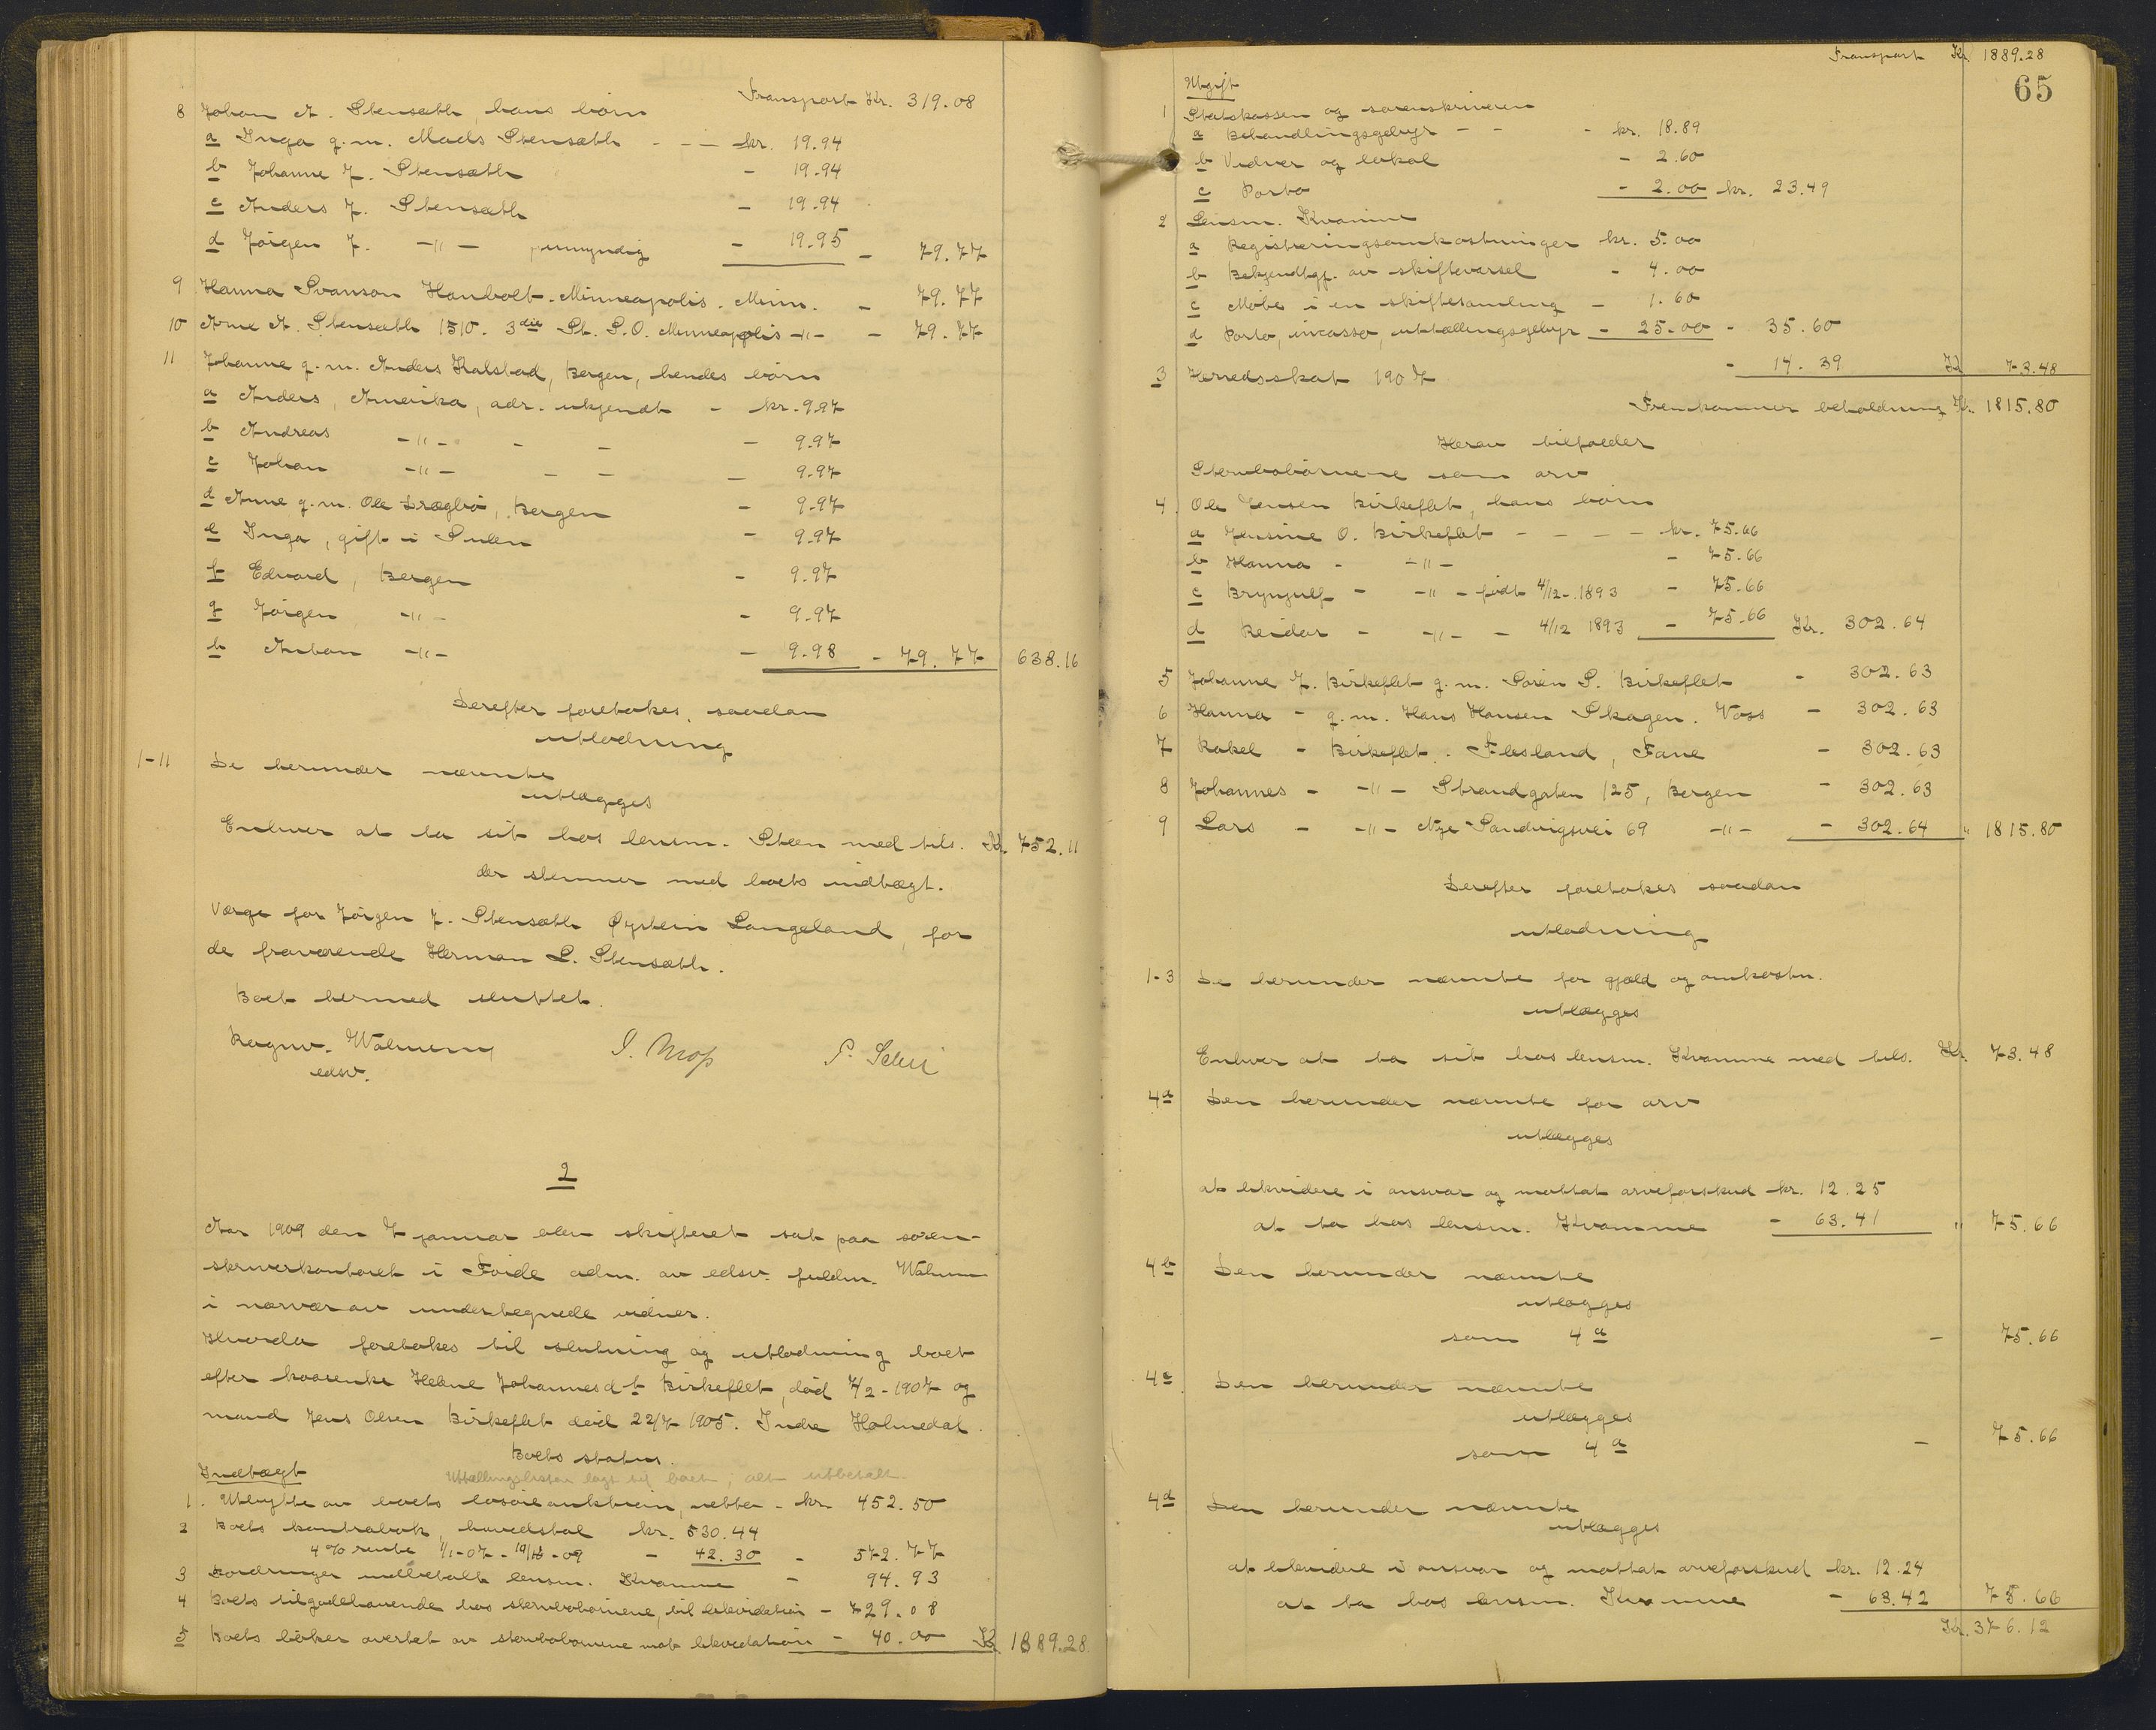 Transport Kr. 319.08
8 Johan A. Stensæth, hans børn
a Inga g.m. Mads Stensæth - - - kr. 19.94
b Johanne J. Stensæth - 19.94
c Anders J. Stensæth - 19.94
d Jørgen J. -"- umyndig - 19.95 - 79.77
9 Hanna Svanson Haubolt. Minneapolis. Minn. - 79.77
10 Arne A. Stensæth 1510. 3die St. S.O. Minneapolis -"- - 79.77
11 Johanne g.m. Anders Kalstad, Bergen, hendes børn
a Anders, Amerika, adr. ukjendt - kr. 9.97
b Andreas -"- - - - 9.97
c Johan -"- - - - 9.97
d Anne g.m. Ole Drægbø, Bergen - 9.97
e Inga, gift i Sulen - 9.97
f Edvard, Bergen - 9.97
g Jørgen -"- - 9.97
h Anton -"- - 9.98 - 79.77 638.16
Derefter foretokes saadan
utlodning
1-11 De herunder nævnte
utlægges
Enhver at ta sit hos lensm. Steen med tils. Kr. 752.11
der stemmer med boets indtægt.
Værge for Jørgen J. Stensæth Øystein Langeland, for
de fraværende Herman L. Stensæth.
Boet hermed sluttet.
Ragnv. Wålmeng
edsv.
2
Aar 1909 den 7 januar blev skifteret sat paa soren-
skriverkontoret i Førde adm. av edsv. fuldm.
i nærvær av undertegnede vidner.
Hvorda foretokes til slutning og utlodning boet
efter kaarenke Helene Johannesdt Birkeflet, død 7/2-1907 og
mand Jens Olsen Birkeflet død 22/7 1905. Indre Holmedal.
Boets status.
Indtægt
Uttællingslisten lagt til boet; alt utbetalt.
1. Utbytte av boets løsøreauktion, netto - kr. 452.50
2 Boets kontrabok, hovedstol kr. 530.44
4% rente 1/1-07 - -09 - 42.30 - 572.77
3 Fordringer indbetalt lensm. Kvamme - 94.93
4 Boets tilgodehavende hos stervbobørnene, til likvidation - 729.08
5 Boets bøker overtat av stervbobørnene mot likvidation - 40.00 Kr. 1889.28
Transport Kr. 1889.28
65
Utgift
1 Statskassen og sorenskriveren
a Behandlingsgebyr - - - kr. 18.89
b Vidner og lokal - 2.60
c Porto - 2.00 kr. 23.49
2 Lensm. Kvamme
a Registreringsomkostninger kr. 5.00
b Bekjendtgj. av skiftevarsel - 4.00
c Møte i en skiftesamling - 1.60
d Porto, incasso, uttællingsgebyr - 25.00 - 35.60
3 Herredsskat 1907 - 14.39 Kr. 73.48
Fremkommer beholdning Kr. 1815.80
Herav tilfalder
Stervbobørnene som arv
4. Ole Jensen Birkeflet, hans børn
a Jensine O. Birkeflet - - - - kr. 75.66
b Hanna - -"- - 75.66
c Brynjulf - -"- - født 4/12-1893 - 75.66
d Reidar - -"- - 4/12 1893 - 75.66 Kr. 302.64
5 Johanne J. Birkeflet g.m. Søren S. Birkeflet - 302.63
6 Hanna - g.m. Hans Hansen Skagen. Voss - 302.63
7 Rakel - Birkeflet. Flesland, Fane - 302.63
8 Johannes - -"- Strandgaten 125, Bergen - 302.63
9 Lars - -"- Nye Sandvigsvei 69 -"- - 302.64 " 1815.80
Derefter foretokes saadan
utlodning
1-3 De herunder nævnte for gjæld og omkostn.
utlægges
Enhver at ta sit hos lensm. Kvamme med tils. Kr. 73.48
4a Den herunder nævnte for arv
utlægges
at likvidere i ansvar og mottat arveforskud kr. 12.25
at ta hos lensm. Kvamme - 63.41 " 75.66
4b Den herunder nævnte
utlægges
som 4a - 75.66
4c Den herunder nævnte
utlægges
som 4a - 75.66
4d Den herunder nævnte
utlægges
at likvidere i ansvar og mottat arveforskud kr. 12.24
at ta hos lensm. Kvamme - 63.42 75.66
Kr. 376.12